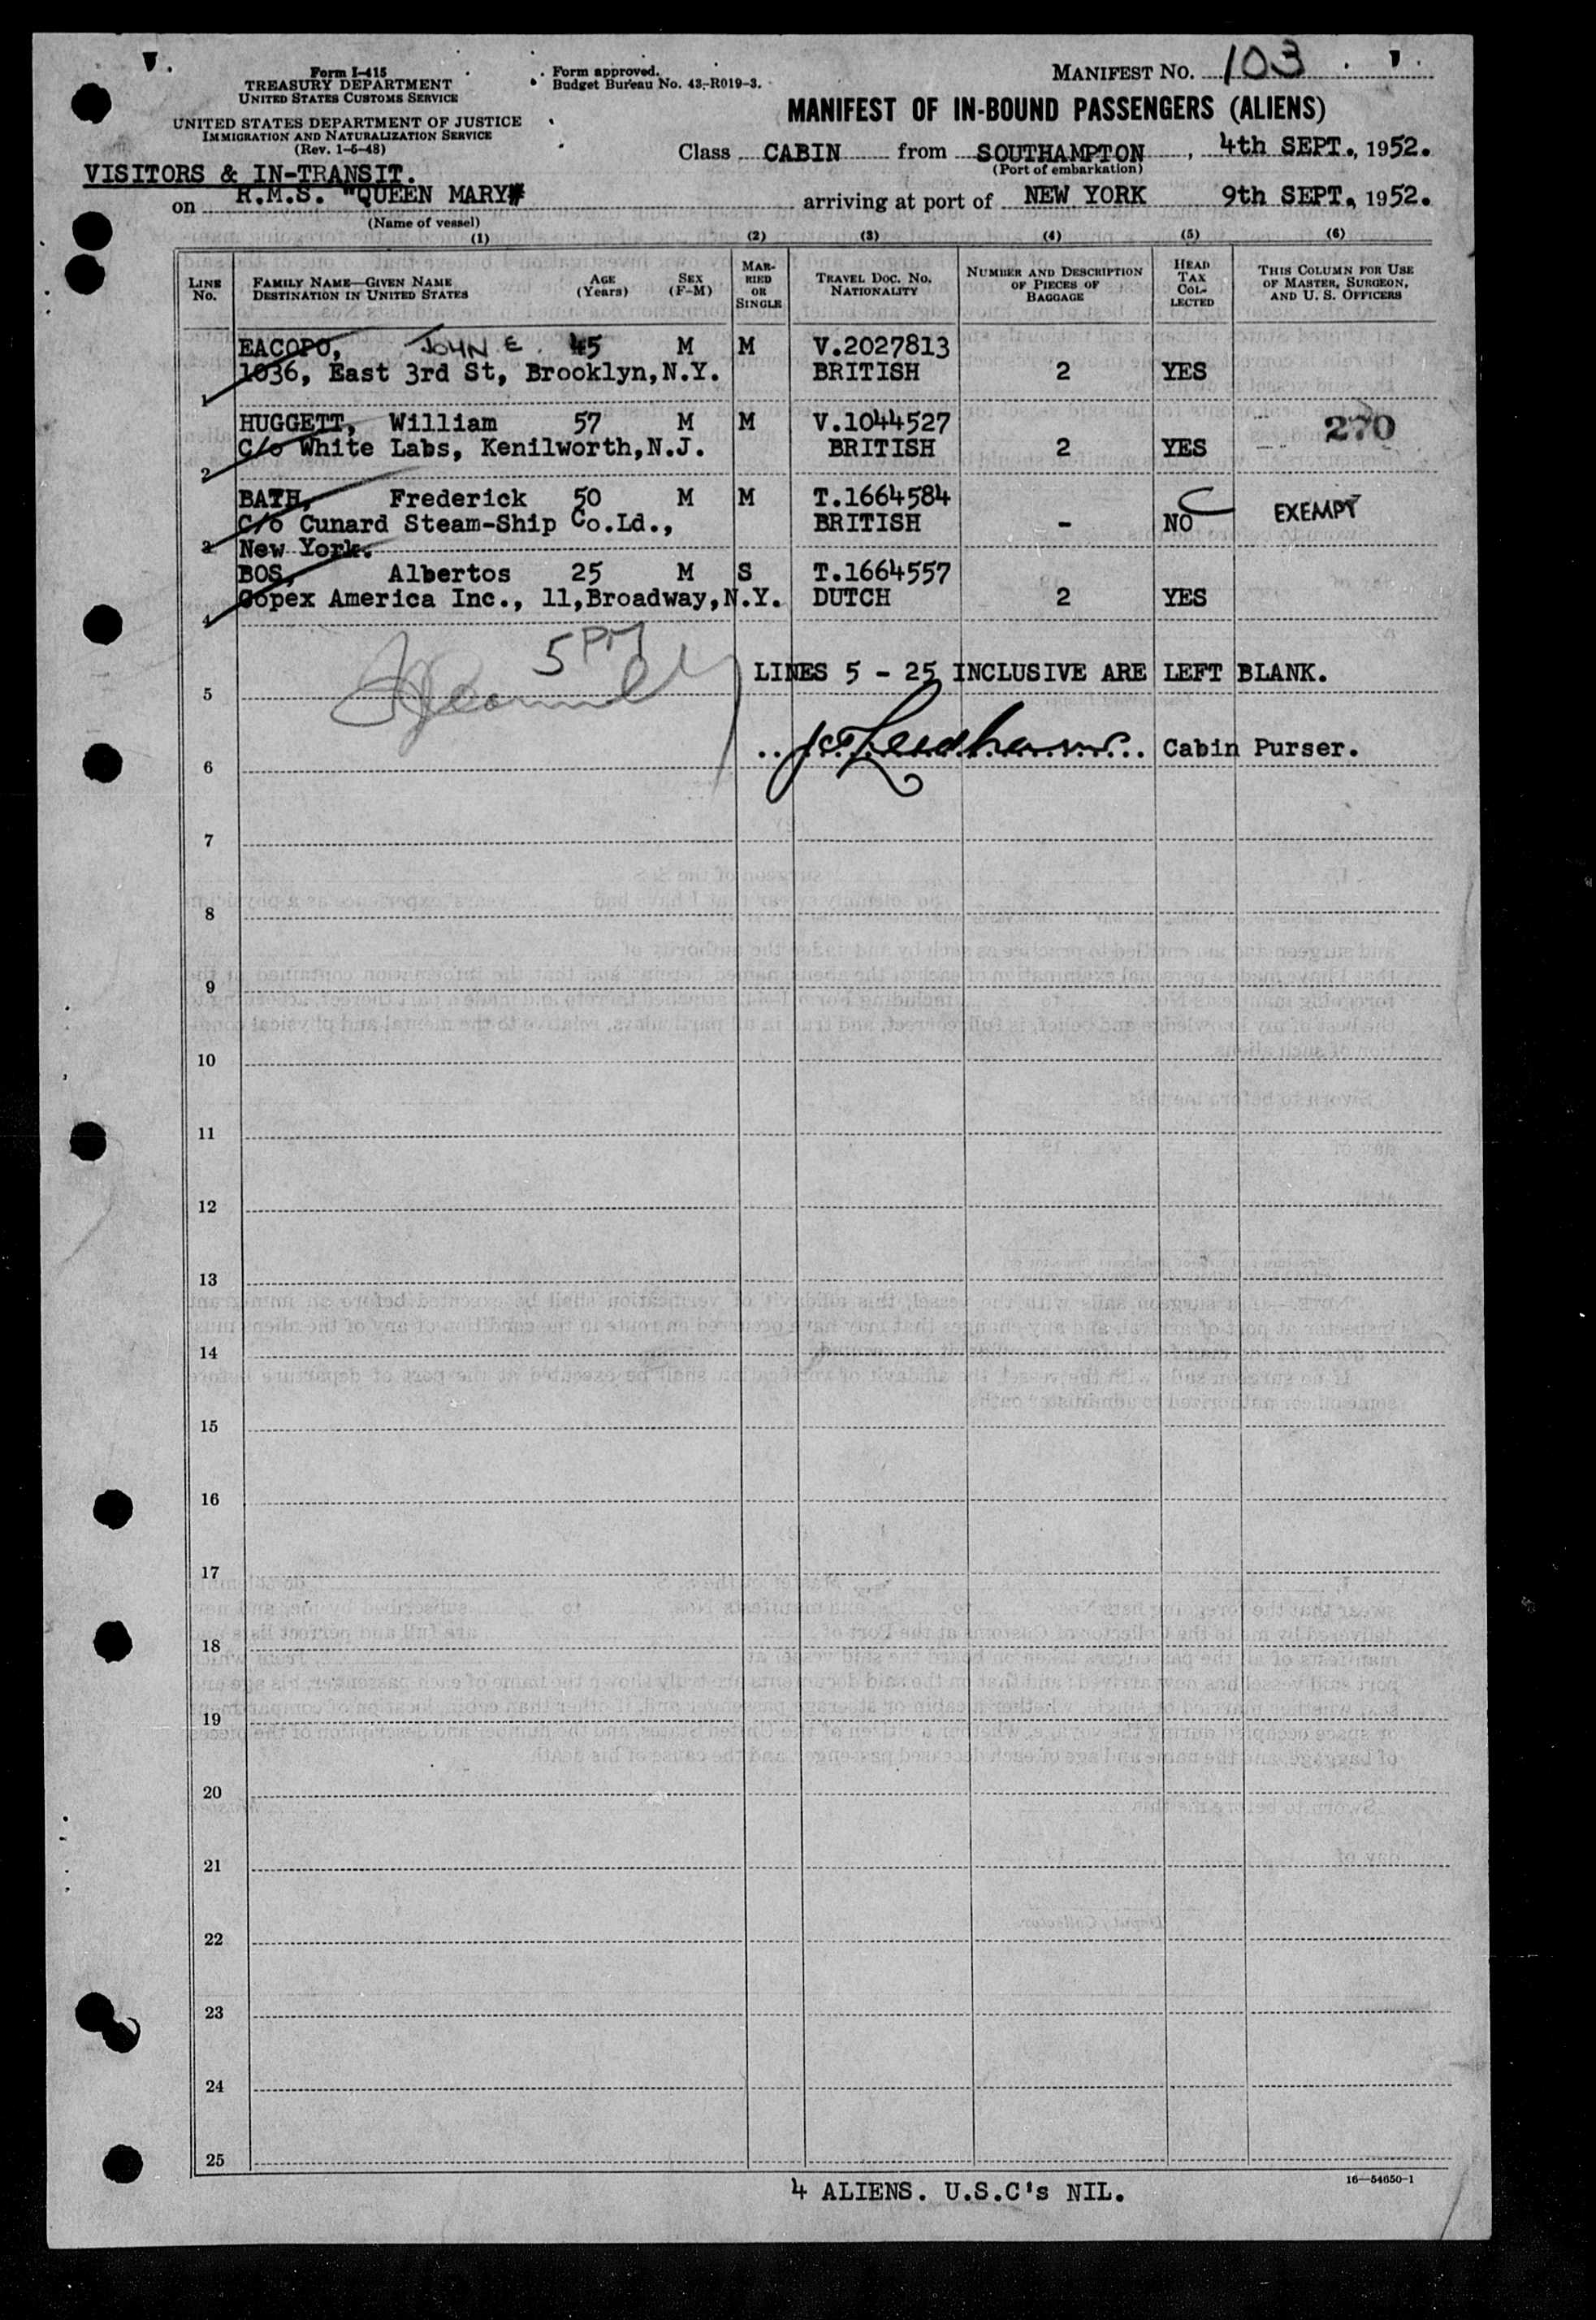 Form I-415
TREASURY DEPARTMENT
UNITED STATES CUSTOMS SERVICE
UNITED STATES DEPARTMENT OF JUSTICE
IMMIGRATION AND NATURALIZATION SERVICE
(Rev. 1-5-48)
Form approved.
Budget Bureau No. 43-R019-3.
MANIFEST NO. 103
MANIFEST OF IN-BOUND PASSENGERS (ALIENS)
Class CABIN from SOUTHAMPTON, 4th SEPT., 1952.
(Port of embarkation)
VISITORS & IN-TRANSIT.
on R.M.S. "QUEEN MARY" arriving at port of NEW YORK 9th SEPT., 1952.
(Name of vessel)
(1) (2) (3) (4) (5) (6)
LINE No. FAMILY NAME—GIVEN NAME DESTINATION IN UNITED STATES AGE (Years) SEX (F-M) MARRIED OR SINGLE TRAVEL DOC. NO. NATIONALITY NUMBER AND DESCRIPTION OF PIECES OF BAGGAGE HEAD TAX COLLECTED THIS COLUMN FOR USE OF MASTER, SURGEON, AND U. S. OFFICERS
EACOPO, JOHN E. 45 M M V.2027813
1 1036, East 3rd St, Brooklyn, N.Y. BRITISH 2 YES
HUGGETT, William 57 M M V.1044527 270
2 C/o White Labs, Kenilworth, N.J. BRITISH 2 YES
BATH, Frederick 50 M M T.1664584 EXEMPT
C/o Cunard Steam-Ship Co.Ld., BRITISH - NO
3 New York.
BOS, Albertos 25 M S T.1664557
4 Copex America Inc., 11, Broadway, N.Y. DUTCH 2 YES
5 PM
LINES 5 - 25 INCLUSIVE ARE LEFT BLANK.
5
Cabin Purser.
6
7
8
9
10
11
12
13
14
15
16
17
18
19
20
21
22
23
24
25
4 ALIENS. U.S.C's NIL.
16—54650-1